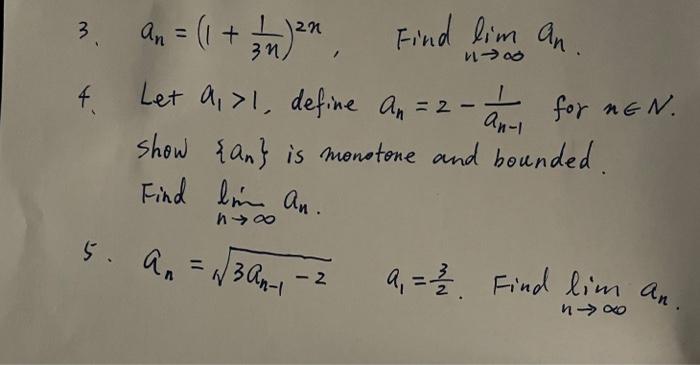 3. aₙ = (1 + 1/3n)²ⁿ, Find lim n→∞ aₙ.
4. Let a₁ >1, define aₙ = 2 - 1/aₙ₋₁ for n∈N.
show {aₙ} is monotone and bounded.
Find lim n→∞ aₙ.
5. aₙ = √(3aₙ₋₁ - 2) a₁ = 3/2. Find lim n→∞ aₙ.